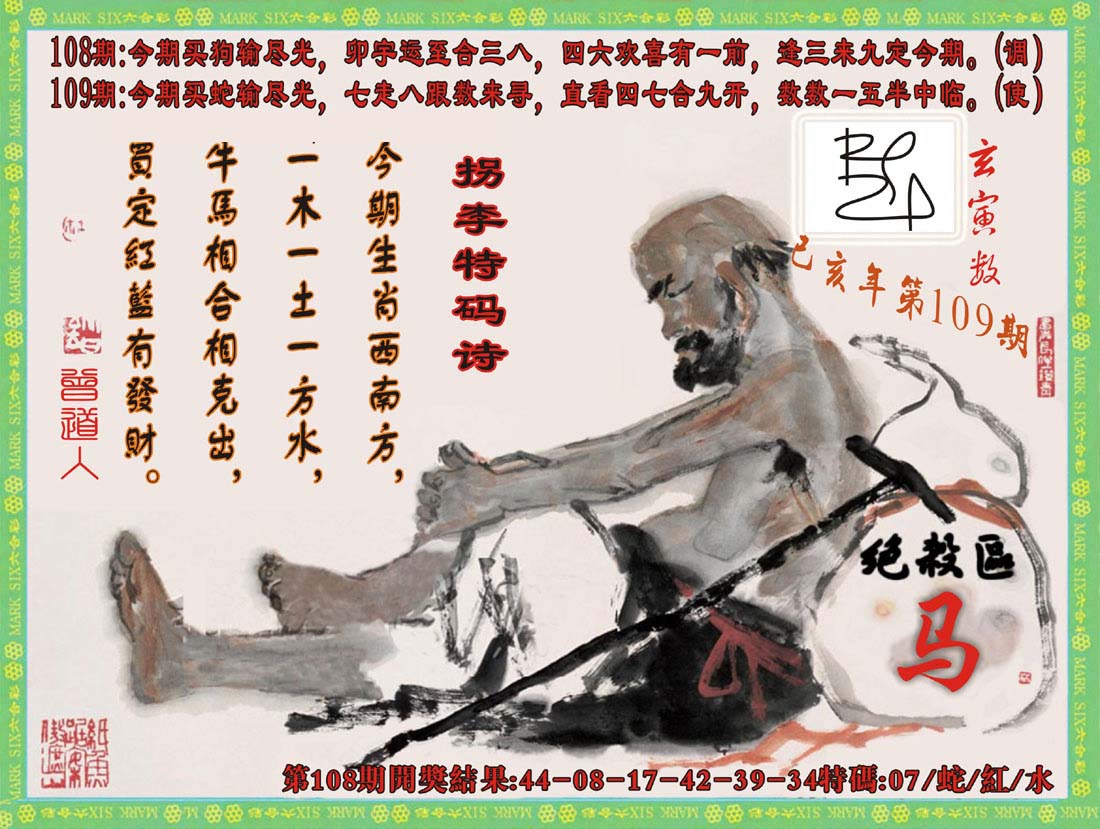 MARK SIX六合彩
108期:今期买狗输尽光，卯字运至合三八，四六欢喜有一前，逢三来九定今期。(调)
109期:今期买蛇输尽光，七走八跟数来寻，直看四七合九开，数数一五半中临。(使)
玄寅数
己亥年第109期
拐李特码诗
今期生肖西南方，
一木一土一方水，
牛馬相合相克出，
買定紅藍有發財。
曾道人
绝殺區
马
第108期開獎結果:44-08-17-42-39-34特碼:07/蛇/紅/水